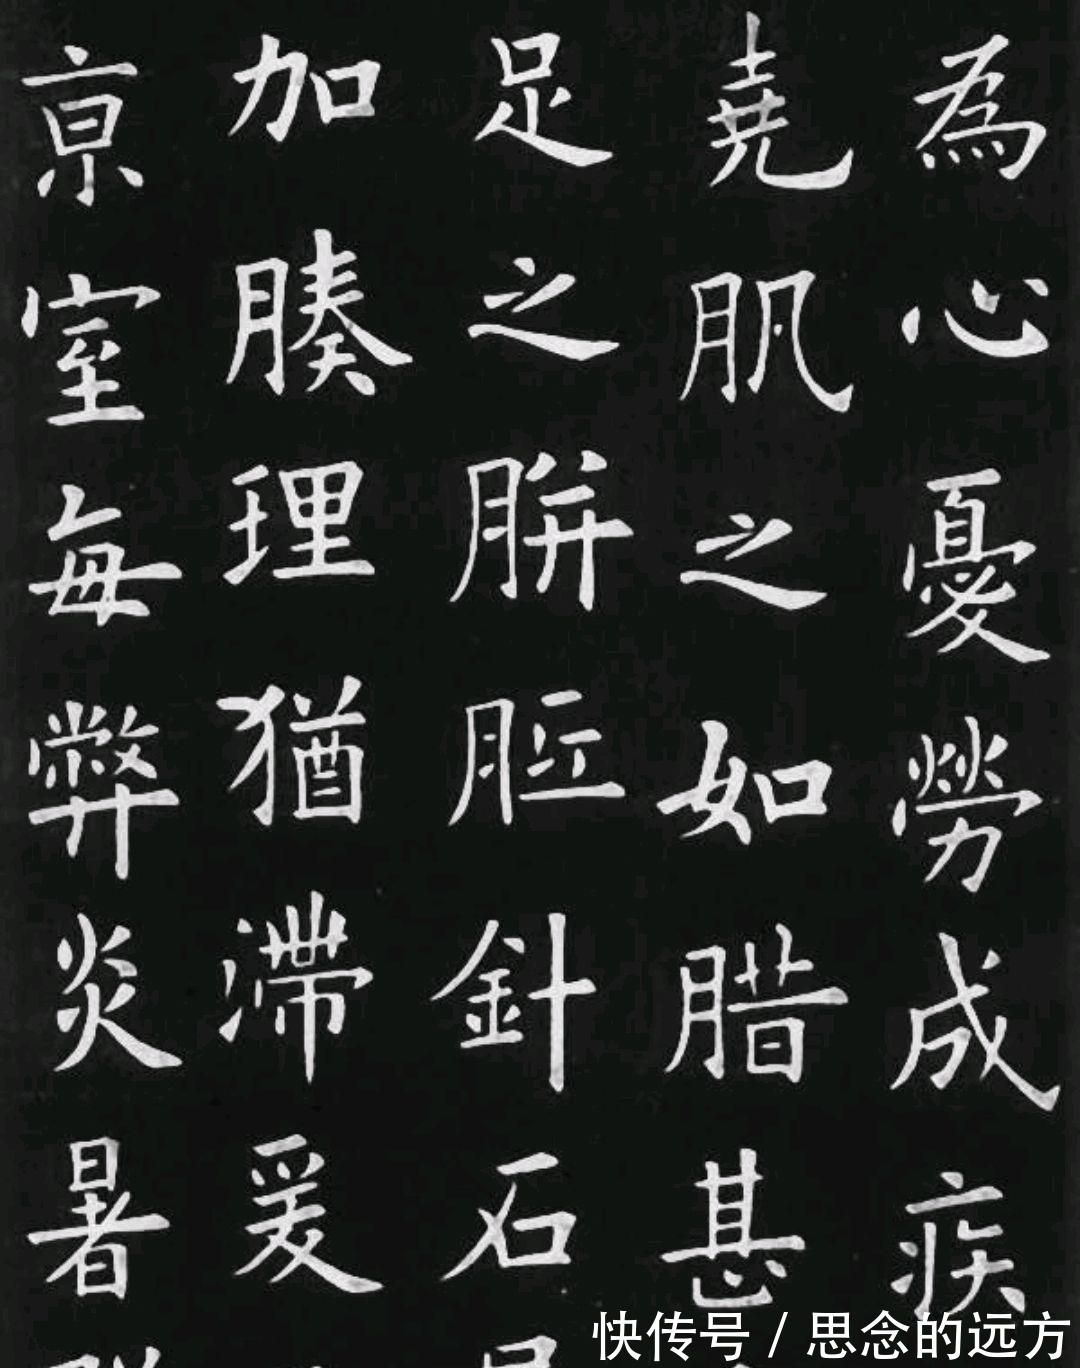 為心憂勞成疾
堯肌之如腊甚
足之胼胝針石
加腠理猶滯爰
亰室每弊炎暑
快传号 / 思念的远方